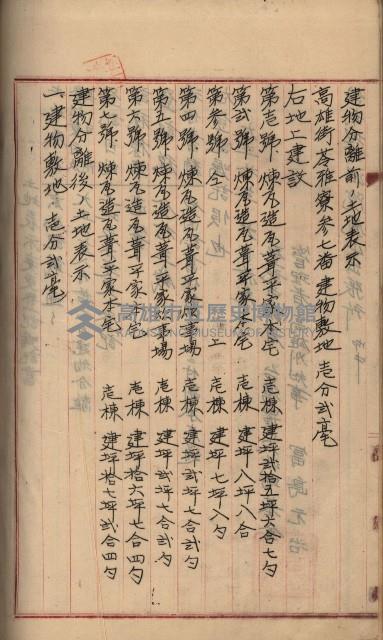 建物分離前ノ土地表示
高雄街苓雅寮参七番建物敷地壱分弐毫
右地上建設
第壱號 煉瓦造瓦葺平家本宅 壱棟 建坪弐拾五坪六合七勺
第弐號 煉瓦造瓦葺平家 宅 壱棟 建坪八坪八合
第参號 仝 上 壱棟 建坪七坪八勺
第四號 煉瓦造瓦葺平家 場 壱棟 建坪弐坪七合弐勺
第五號 煉瓦造瓦葺平家炊事場 壱棟 建坪弐坪七合弐勺
第六號 煉瓦造瓦葺平家本宅 壱棟 建坪拾六坪七合四勺
第七號 煉瓦造瓦葺平家本宅 壱棟 建坪拾七坪弐合四勺
建物分離後ノ土地表示
一建物敷地 壱分弐毫
高雄市立歷史博物館